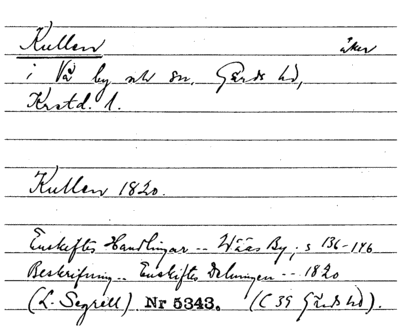 Kullen åker
i Vä by och sn, Gärds hd,
Krstd. l.
Kullen 1820.
Enskiftes Handlingar -- Wääs By, s 136-146
Beskrifning -- Enskiftes Delningen -- 1820
(L. Segrell) Nr 5343. (C 39 Gärds hd).